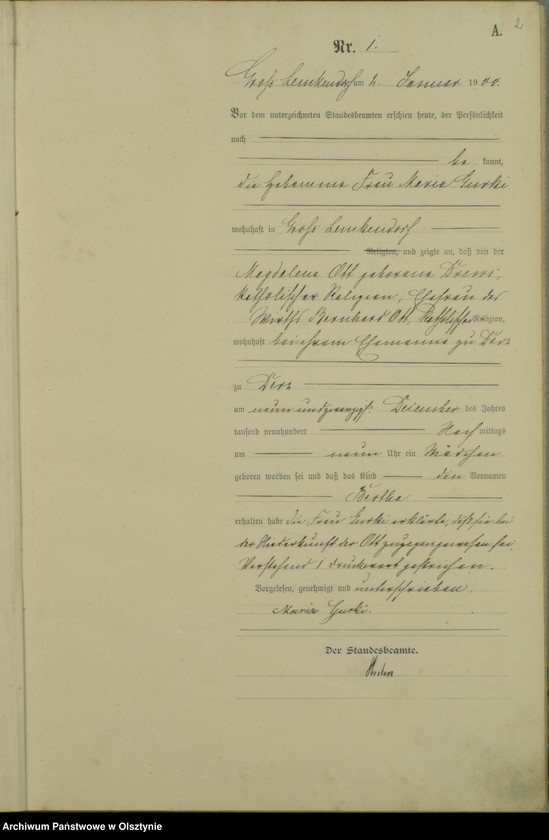 A.
2
Nr. 1.
Groß Lemkendorf am 2. Januar 1900.
Vor dem unterzeichneten Standesbeamten erschien heute, der Persönlichkeit
nach
be kannt,
die Hebamme Frau Maria Gurki
wohnhaft in Groß Lemkendorf
Religion, und zeigte an, daß von der
Magdalena Ott geborene Drews,
katholischer Religion, Ehefrau des
Wirths Bernhard Ott, katholischer Religion,
wohnhaft bei ihrem Ehemanne zu Derz
zu Derz
am neun und zwanzigst. Dezember des Jahres
tausend neunhundert Nach mittags
um neun Uhr ein Mädchen
geboren worden sei und daß das Kind den Vornamen
Bertha
erhalten habe die Frau Gurki erklärte, daß sie bei
der Niederkunft der Ott zugegen gewesen sei.
Vorstehend 1 Druckwort gestrichen.
Vorgelesen, genehmigt und unterschrieben.
Maria Gurki.
Der Standesbeamte.
Archiwum Państwowe w Olsztynie